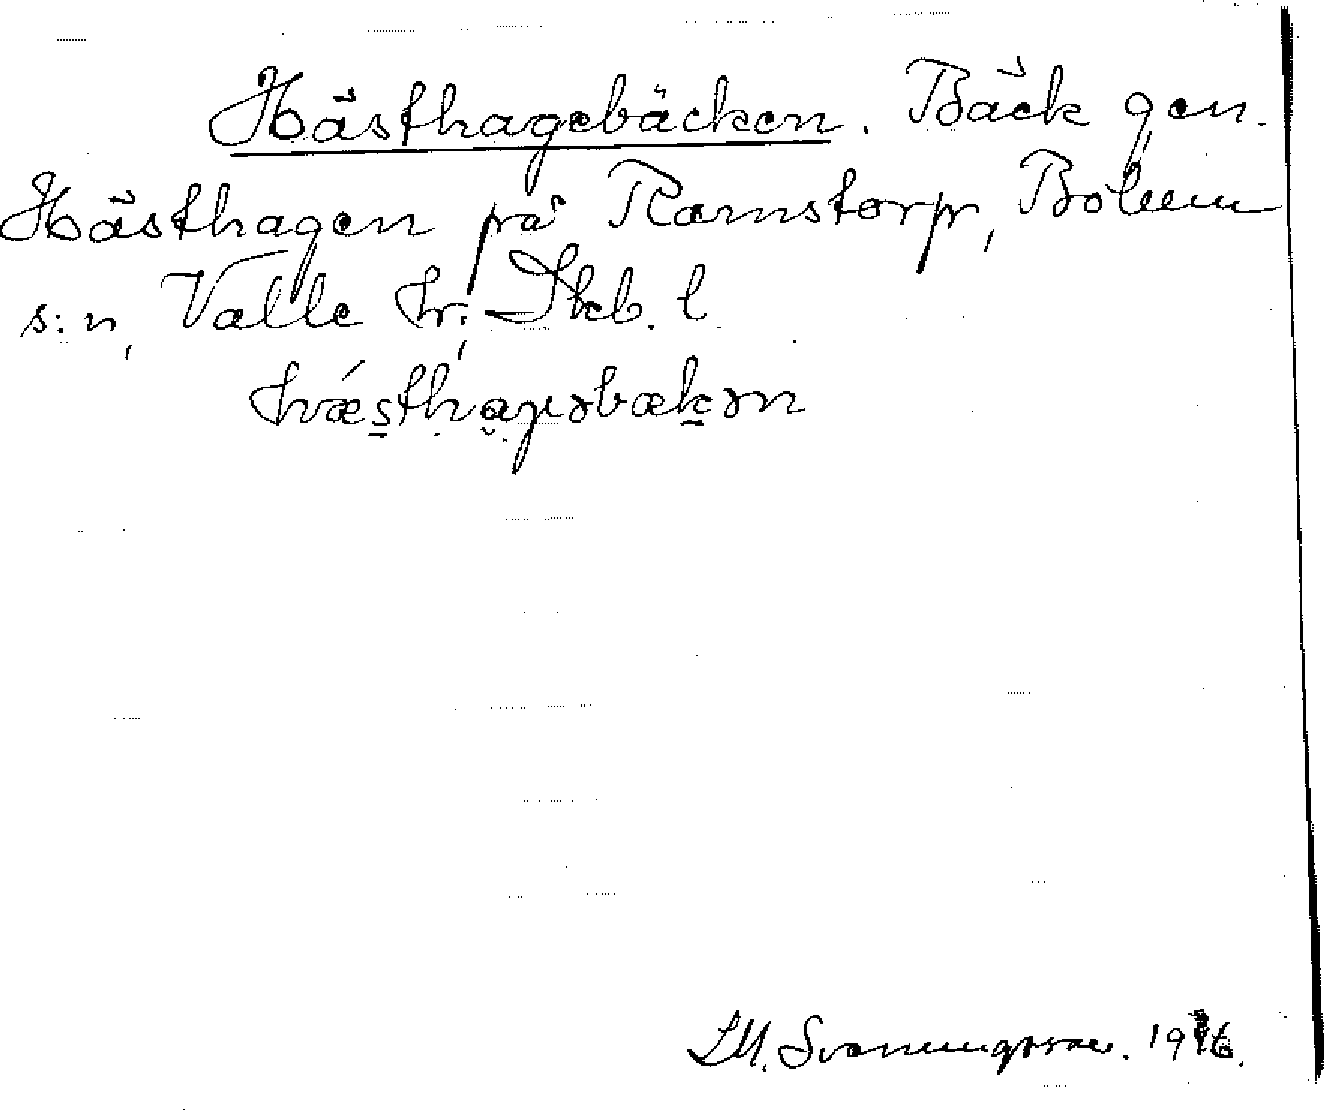 Hästhagebäcken. Bäck gen.
Hästhagen på Ramstorp, Bolum
s:n, Valle hr, Skb. l
hǽsthaɡəbækən
1916.